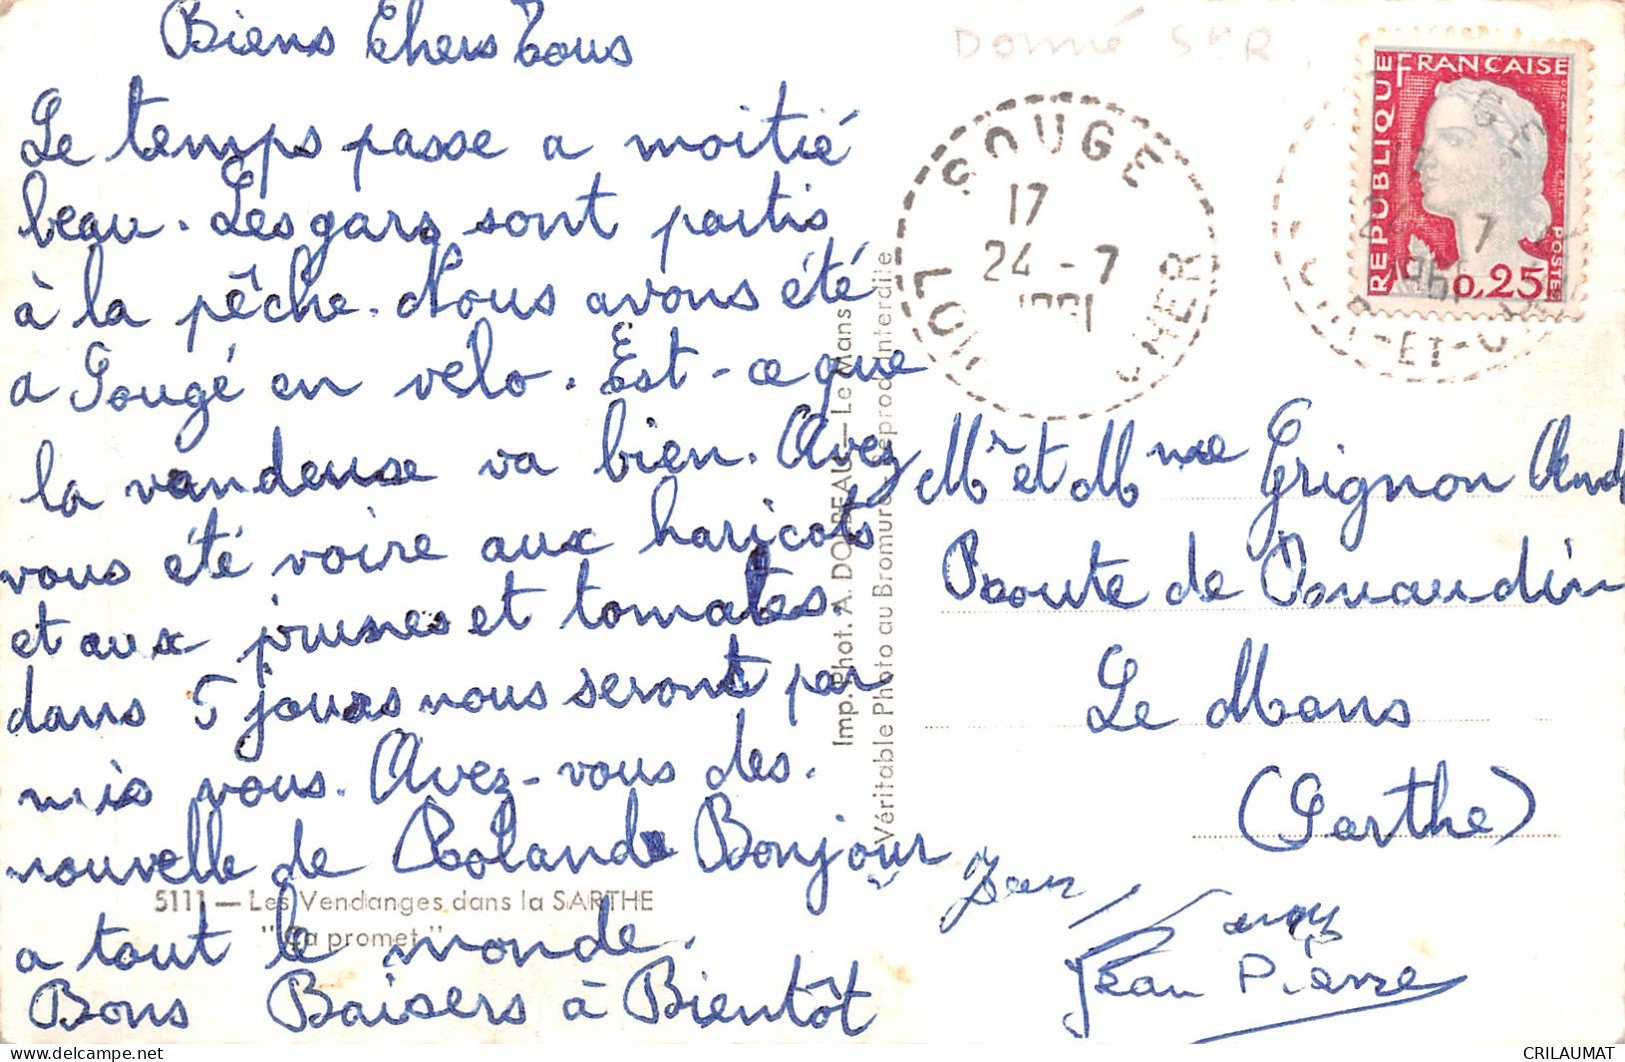 Biens Chers Tous
Le temps passe a moitié
beau. Les gars sont partis
à la pêche. Nous avons été
a Sougé en vélo. Est-ce que
la vandeuse va bien. Avez
vous été voire aux haricots
et aux prunes et tomates.
dans 5 jours nous seront par
mis vous. Avez-vous des.
nouvelle de Rolande Bonjour
a tout le monde.
Bons Baisers à Bientôt
Jean
Jean Pierre
5111 — Les Vendanges dans la SARTHE
" Ça promet "
Imp. Phot. A. DOLBEAU — Le Mans
Véritable Photo au Bromure - Reprod. Interdite
Donné
SOUGE
17
24 - 7
1961
LOIR CHER
REPUBLIQUE FRANÇAISE
POSTES
0,25
7
1961
LOIR-ET-CHER
Mr et Mme Grignon And
Route de Ruaudin
Le Mans
(Sarthe)
CRILAUMAT